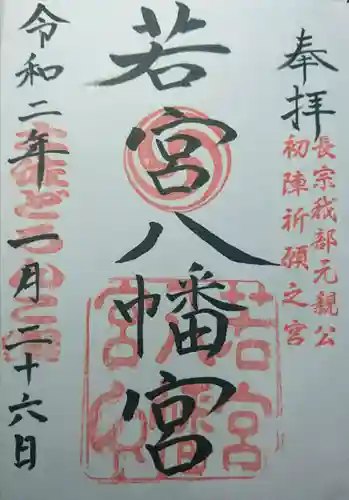 奉拝
長宗我部元親公
初陣祈願之宮
若宮八幡宮
令和二年一月二十六日